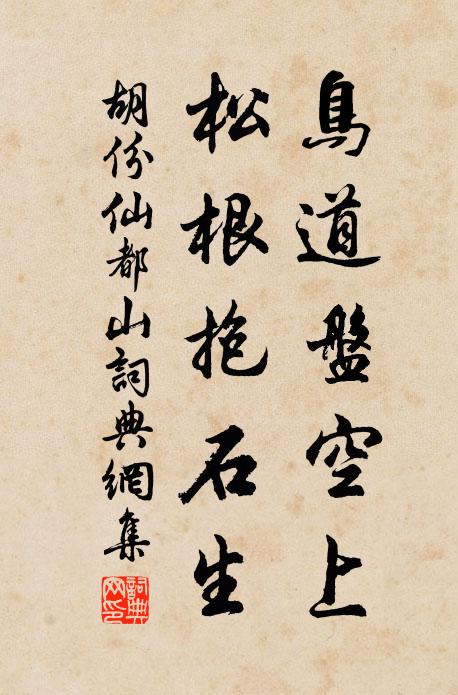 鳥道盤空上
松根抱石生
胡份仙都山詞典網集
詞典网印